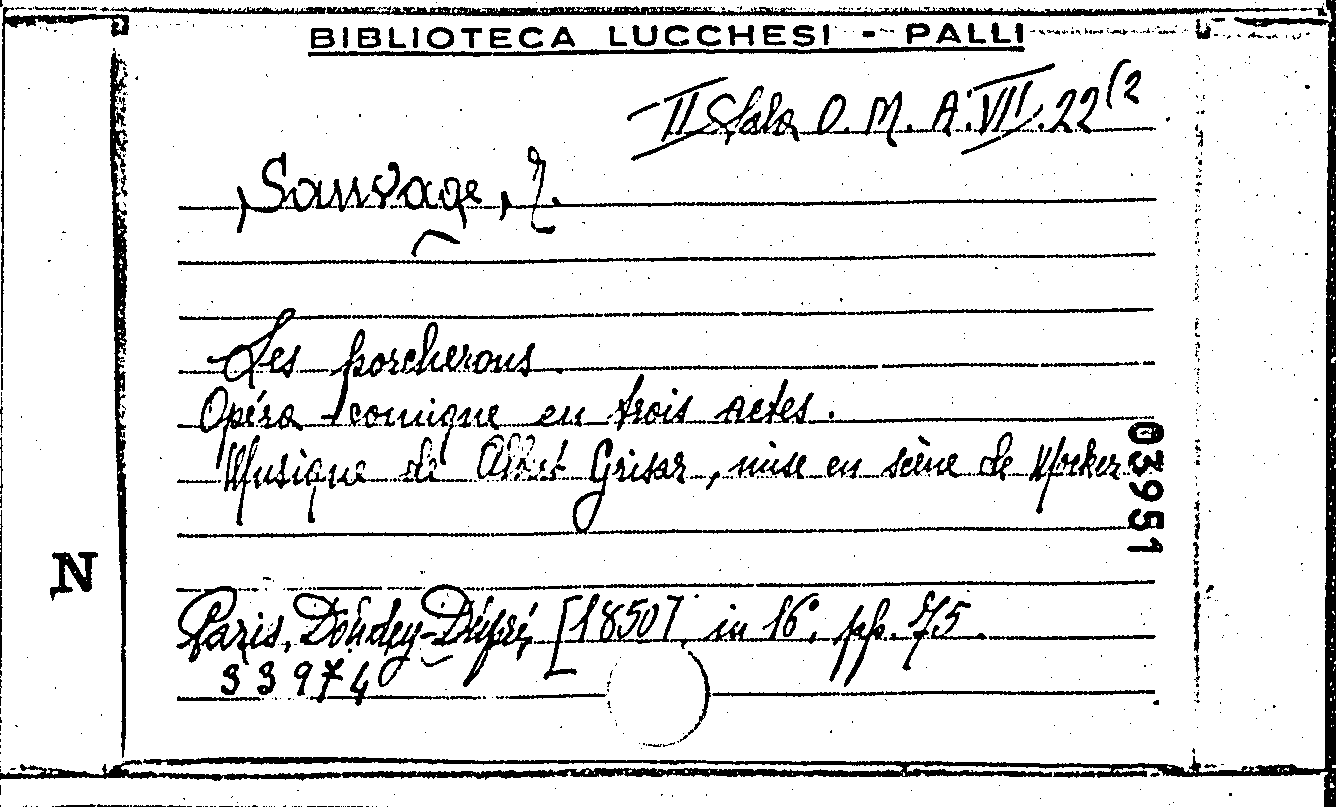 BIBLIOTECA LUCCHESI - PALLI
II Sala O. M. A. VII. 22(2
Sauvage, T.
Les porcherons.
Opéra-comique en trois actes.
Musique de Albert Grisar, mise en scène de Mocker
03951
N
Paris, Dondey-Dupré, [1850]. in 16°. pp. 75.
33974